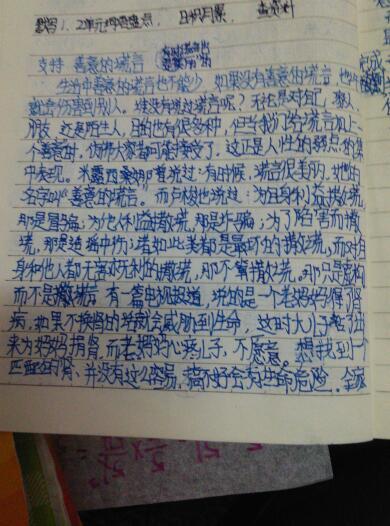 支持 善意的谎言
生活中善意的谎言也不能少，如果没有善意的谎言，也许
就会伤害到别人。谁没有说过谎言呢？无论是对自己，亲人，
朋友，还是陌生人，目的也有很多种，但当我们给谎言加上一
个善意时，仿佛大家都可能接受了，这正是人性的弱点的集
中表现。米露西娜娜曾说过：有时候，谎言很美丽，她的
名字叫“善意的谎言”。而卢梭也说过：为自身利益撒谎，
那是冒骗；为他人利益撒谎，那是诈骗；为了陷害而撒
谎，那是造谣中伤；诸如此类都是最坏的撒谎，而对自
身和他人都无害无利的撒谎，那不算撒谎。那只是虚构
而不是撒谎 有一篇电视报道，说的是一个老妈妈得了肾
病，如果不换肾的话就会威胁到生命，这时大儿子站了出
来为妈妈捐肾，而老妈妈心疼儿子，不愿意。想找到一个
匹配的肾，并没有这么容易，搞不好会有生命危险，全家